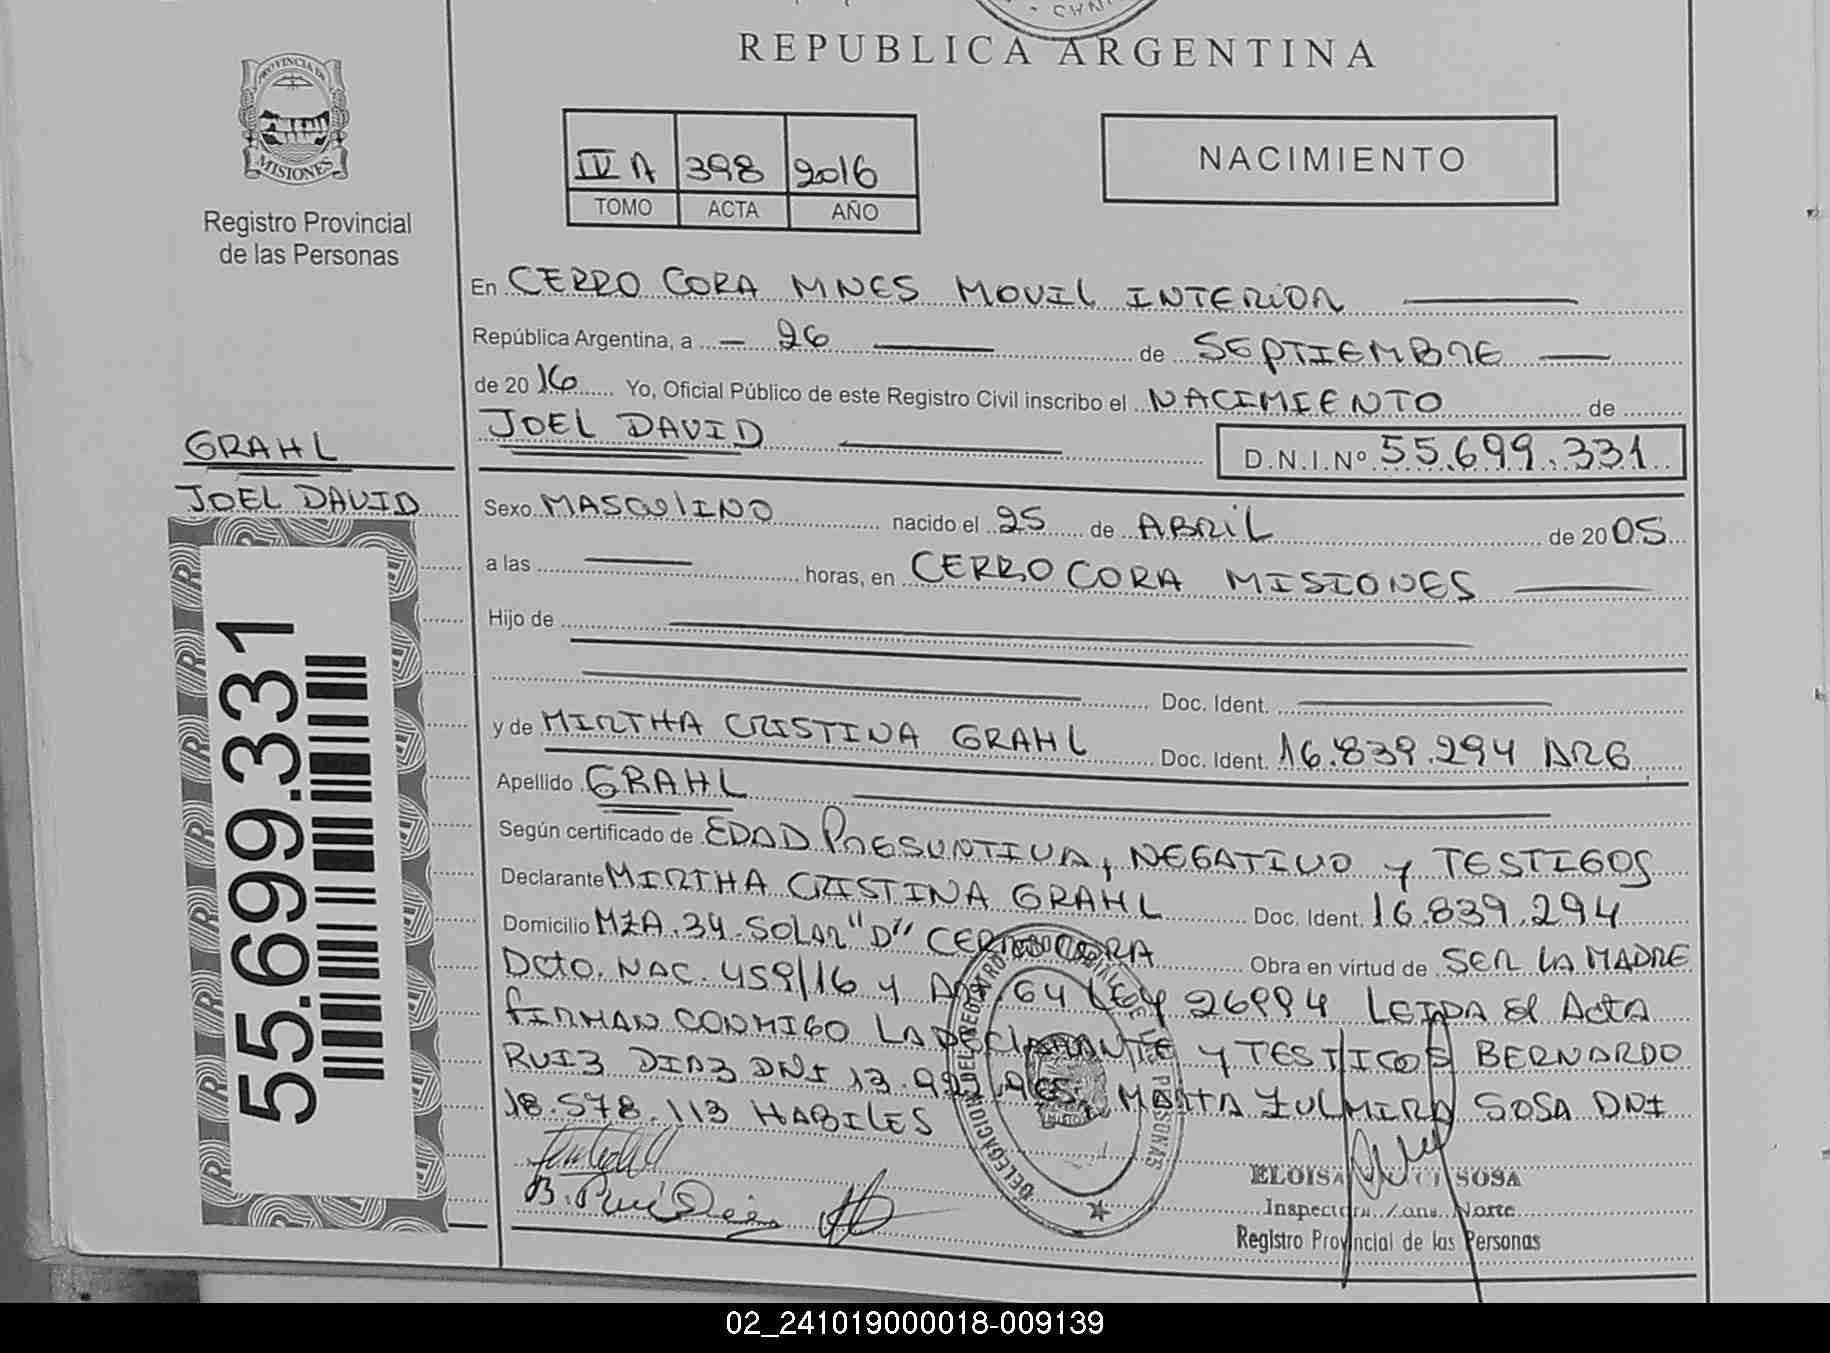 REPUBLICA ARGENTINA
PROVINCIA DE
MISIONES
Registro Provincial
de las Personas
IV A 398 2016
TOMO ACTA AÑO
NACIMIENTO
En CERRO CORA MNES MOVIL INTERIOR
República Argentina, a 26 de SEPTIEMBRE
de 2016 Yo, Oficial Público de este Registro Civil inscribo el NACIMIENTO de
JOEL DAVID D.N.I.Nº 55.699.331
GRAHL
JOEL DAVID
55.699.331
Sexo MASCULINO nacido el 25 de ABRIL de 2005
a las horas, en CERRO CORA MISIONES
Hijo de
Doc. Ident.
y de MIRTHA CRISTINA GRAHL Doc. Ident. 16.839.294 ARG
Apellido GRAHL
Según certificado de EDAD PRESUNTIVA, NEGATIVO y TESTIGOS
Declarante MIRTHA CRISTINA GRAHL Doc. Ident. 16.839.294
Domicilio MZA.34 SOLAR "D" CERRO CORA Obra en virtud de SER LA MADRE
Dcto. NAC. 459/16 y Art. 64 LEY 26994 LEIDA El ActA
FIRMAN CONMIGO LA DECLARANTE y TESTIGOS BERNARDO
RUIZ DIAZ DNI 13. MARTA ZULMIRA SOSA DNI
18.578.113 HABILES
B. Ruiz Diaz
DELEGACION DEL REGISTRO PERSONAS
ELOISA SOSA
Inspectora Zona Norte
Registro Provincial de las Personas
02_241019000018-009139